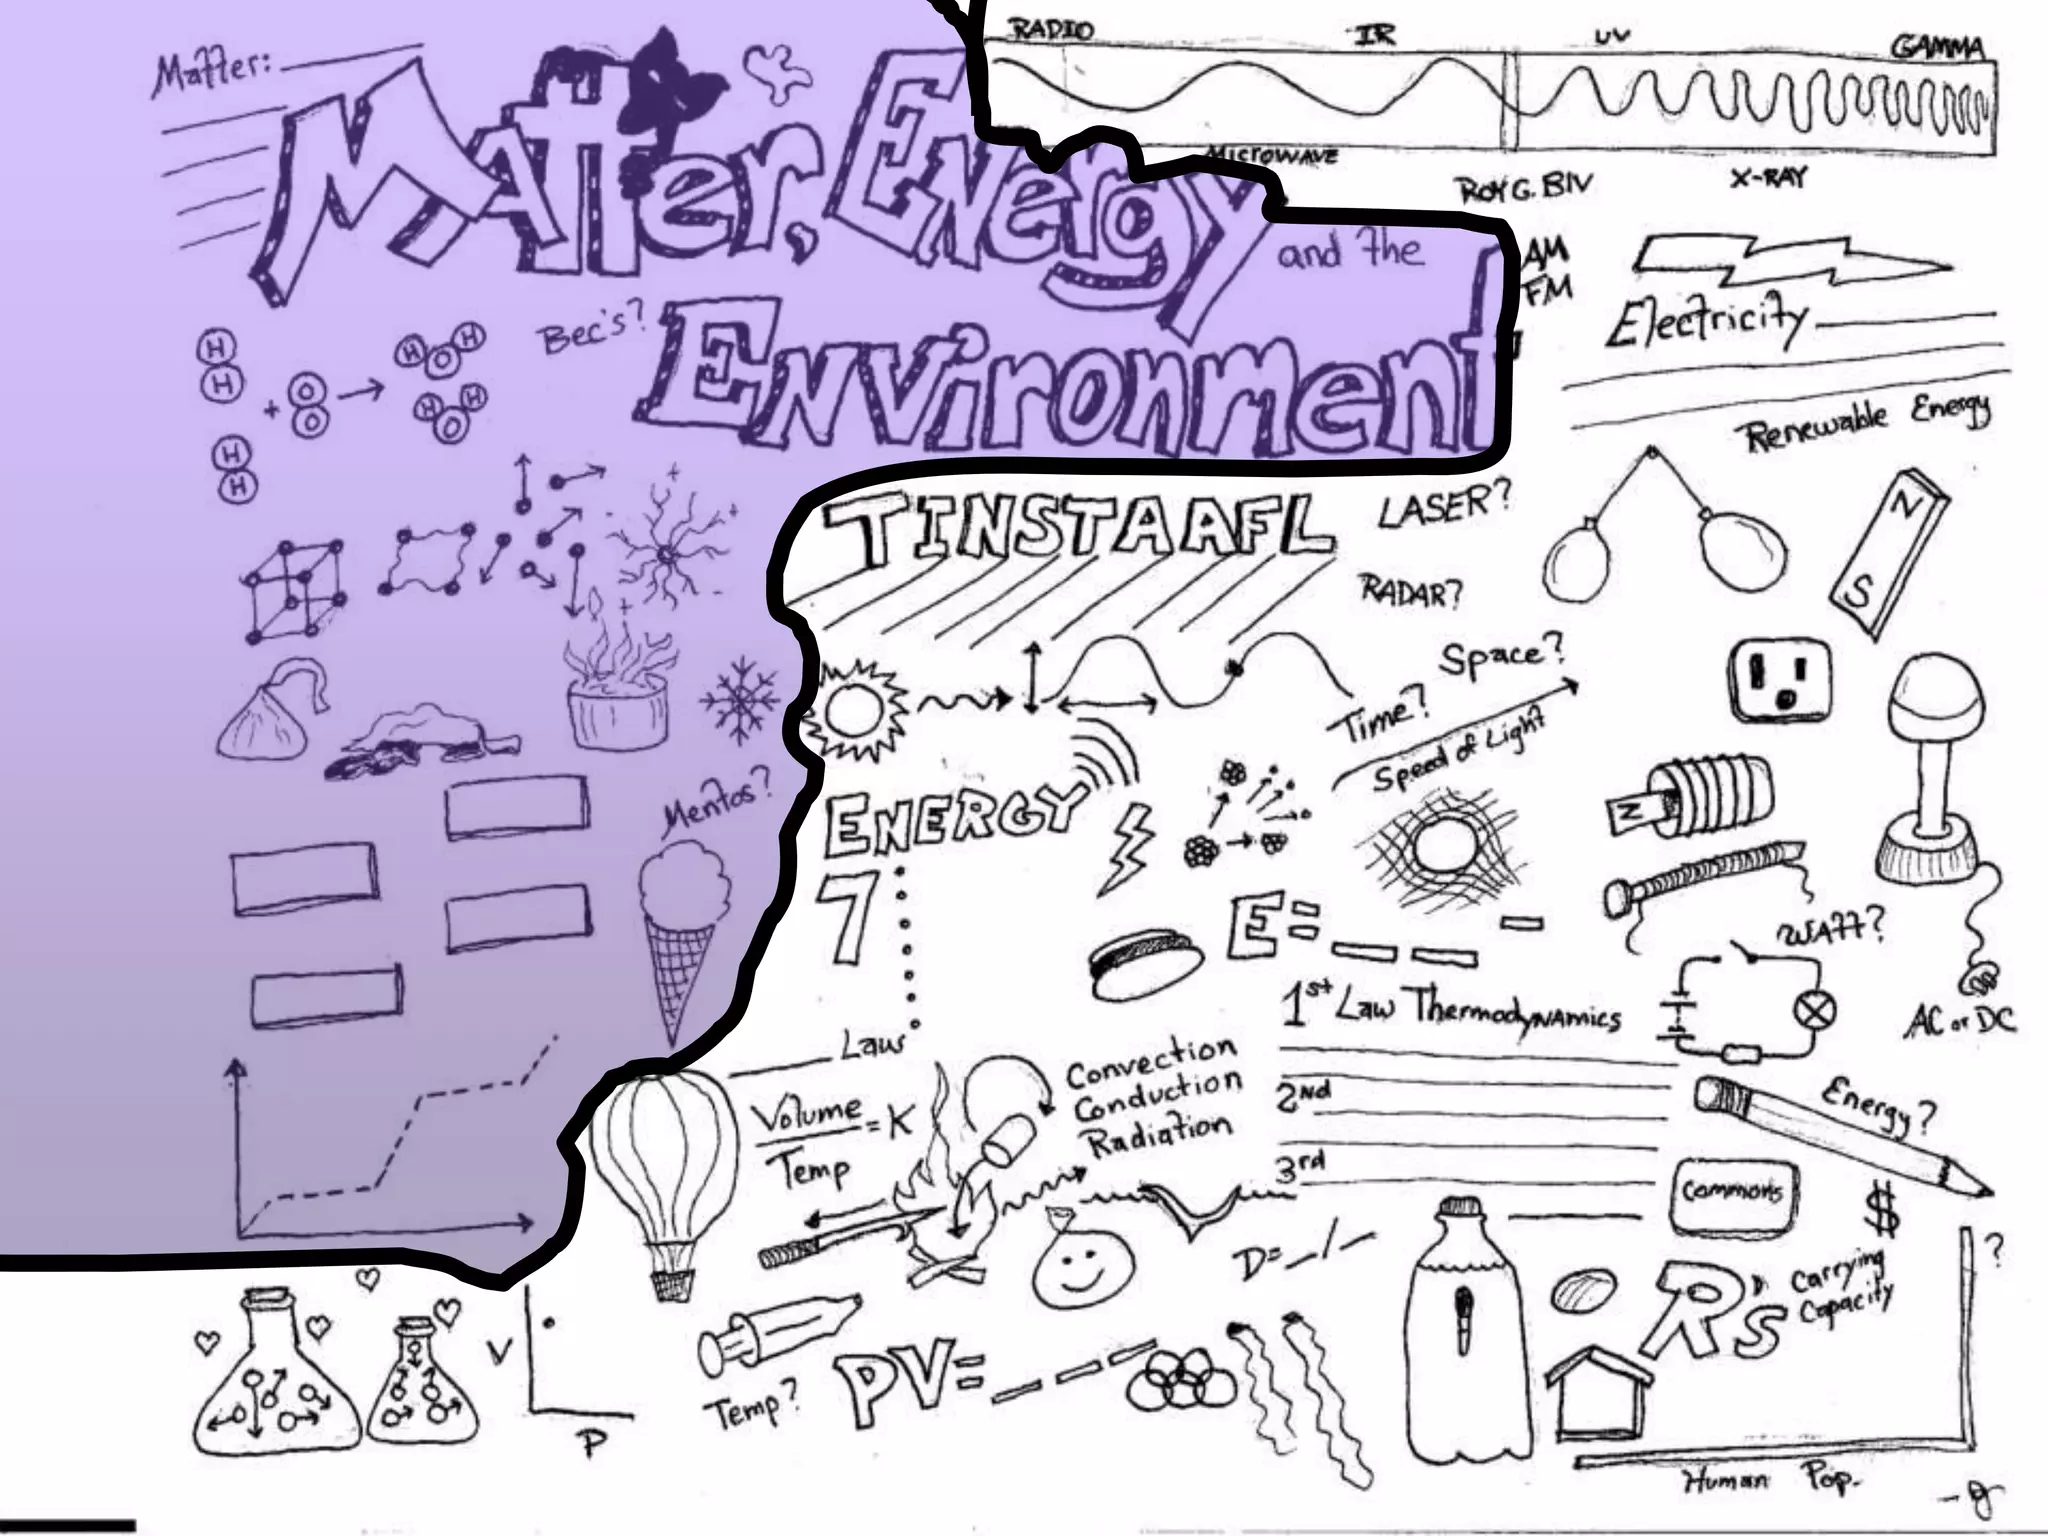 RADIO IR UV GAMMA
Matter:
Matter, Energy and the
Environment
MICROWAVE
ROY G. BIV
X-RAY
AM
FM
Electricity
Renewable Energy
Bec's?
H
H
+ O
O
H
H
H O H
H O H
+
+
+
-
-
TINSTAAFL
LASER?
RADAR?
N
S
Space?
Time?
Speed of Light
Mentos?
ENERGY
7
N
E=
WATT?
AC or DC
1st Law Thermodynamics
2nd
3rd
Law
Volume
Temp
=K
Convection
Conduction
Radiation
Energy?
Commons
$
?
D=_/_
Rs
Carrying
Capacity
V
P
Temp?
PV=
Human Pop.